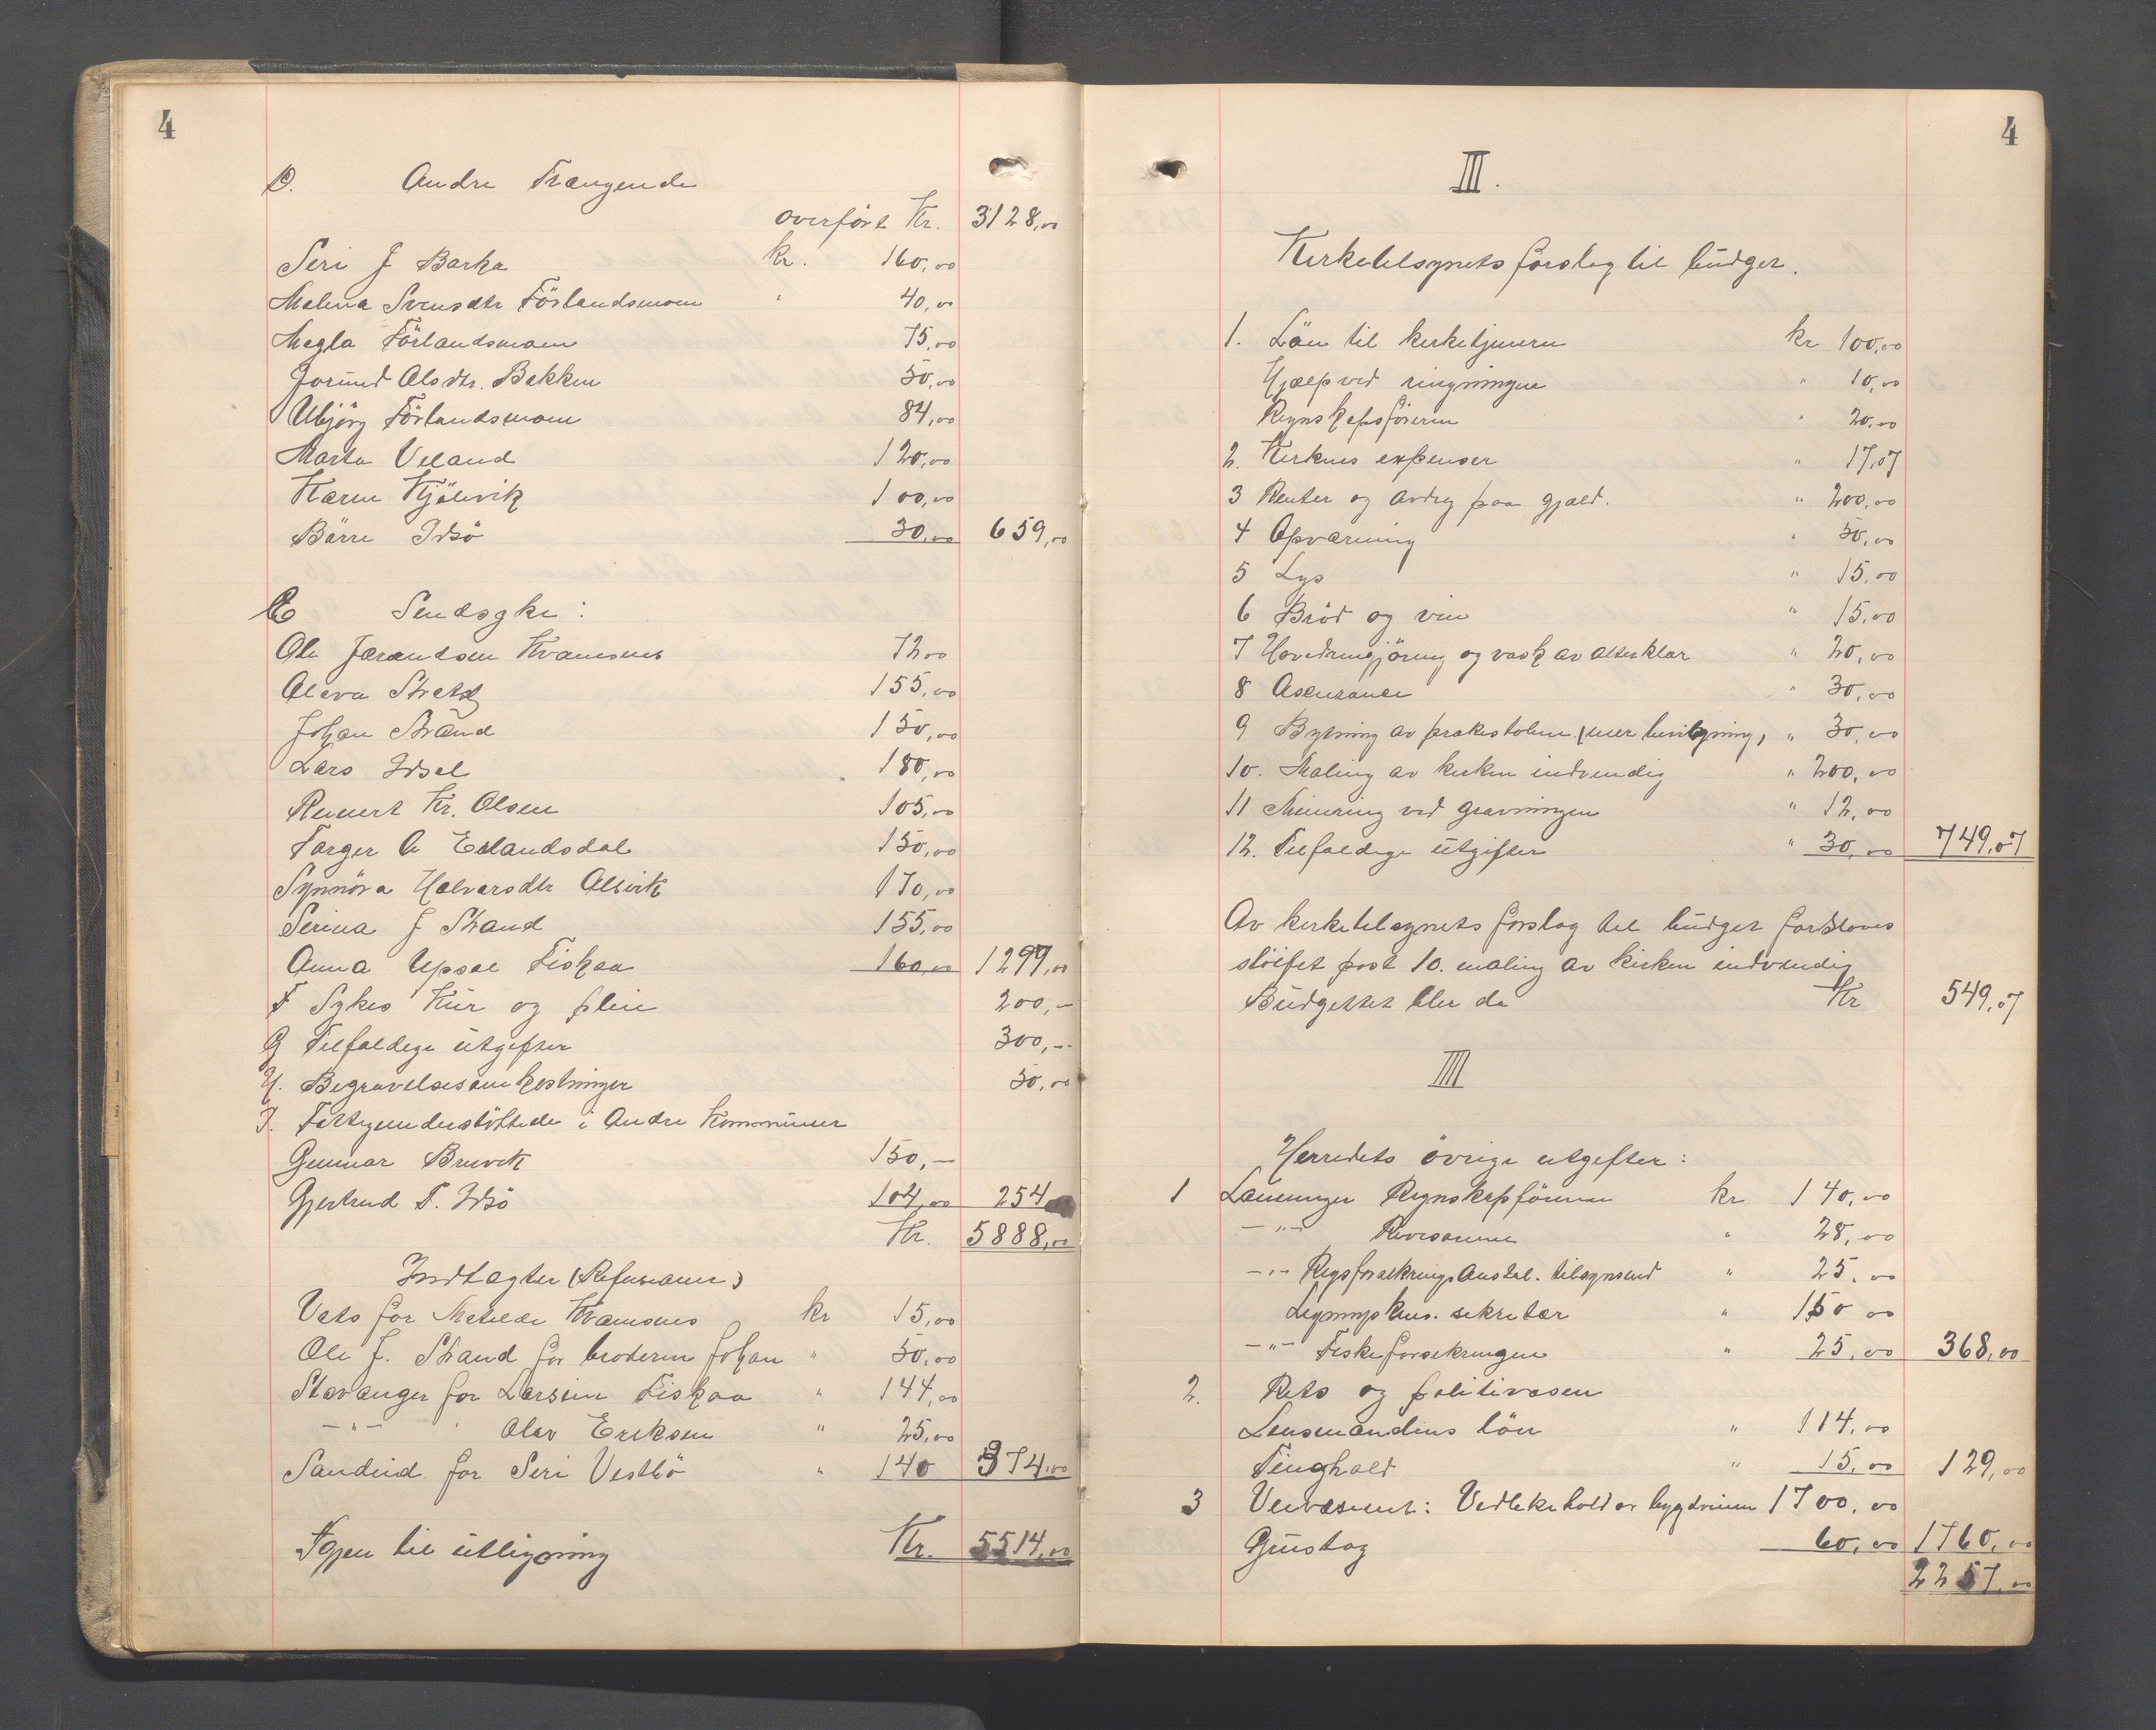 4
D. Andre Trængende
overført Kr. 3128,00
Seri J Barka kr. 160,00
Malena Svensdtr Förlandsmoen " 40,00
Magla Förlandsmoen 75,00
Jorund Olsdtr. Bakken 50,00
Ubjörg Förlandsmoen 84,00
Marta Veland 120,00
Karen Kjölevik 100,00
Börre Idsö 30,00 659,00
E Sendsyke:
Ole Jærandsen Kvamsnes 72,00
Oleva Strand 155,00
Johan Strand 150,00
Lars Idsal 180,00
Reinert Kr. Olsen 105,00
Targer A Erlandsdal 150,00
Synnöva Halvorsdtr Alsvik 170,00
Serina J Strand 155,00
Anna Upsal Fiskaa 160,00 1297,00
F Sykes Kur og pleie 200,-
G Tilfældige utgifter 300,-
H. Begravelsesomkostninger 50,00
I. Fattigunderstöttede i Andre Kommuner
Gunnar Bruvik 150,-
Gjertrud T. Idsö 104,00 254
Kr. 5888,00
Indtægter (Refusioner)
Vats for Matilde Kvamsnes kr 15,00
Ole J. Strand for broderen Johan " 50,00
Stavanger for Larsine Fiskaa " 144,00
-"- " Olav Eriksen " 25,00
Sandeid for Seri Vestbö " 140 374,00
Igjen til utligning Kr. 5514,00
4
III.
Kirketilsynets forslag til budget.
1. Lön til kirketjeneren kr 100,00
Hjælp ved ringningen " 10,00
Regnskapsföreren " 20,00
2. Kirkens expenser " 17,07
3 Renter og avdrag paa gjæld. " 200,00
4 Opvarming " 50,00
5 Lys " 15,00
6 Bröd og vin " 15,00
7 Hovedrengjöring og vask av alterklær " 20,00
8 Asurance " 30,00
9 Bytning av prækestolen (uten bevilgning) " 30,00
10. Maling av kirken indvendig " 200,00
11 Minering ved gravningen " 12,00
12. Tilfældige utgifter " 30,00 749,07
Av kirketilsynets forslag til budget foreslaaes
slöifet post 10. maling av kirken indvendig
Budgettet blir da Kr 549,07
IIII
Herredets övrige utgifter:
1 Lönninger Regnskapsföreren kr 140,00
-"- Revisorene " 28,00
-"- Rigsforsikringsanstal. tilsynsmd " 25,00
Ligningskms. sekretær " 150 00
-"- Fiskeforsikringen " 25,00 368,00
2. Rets og politivæsen
Lensmandens lön " 114,00
Tinghold " 15,00 129,00
3 Veivæsenet: Vedlikehold av bygdeveien 1700,00
Grustag 60,00 1760,00
2257,00